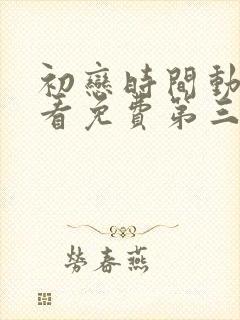 初戀時間動
看免費第三
勞春燕